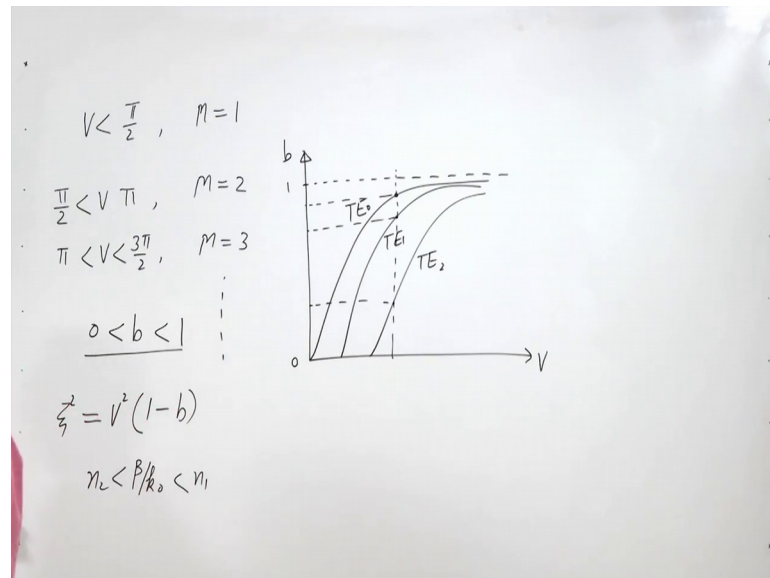 V < π/2 , M = 1
π/2 < V π , M = 2
π < V < 3π/2 , M = 3
0 < b < 1
ξ² = V² (1 - b)
n₂ < β/k₀ < n₁
b
1
TE₀
TE₁
TE₂
0
V